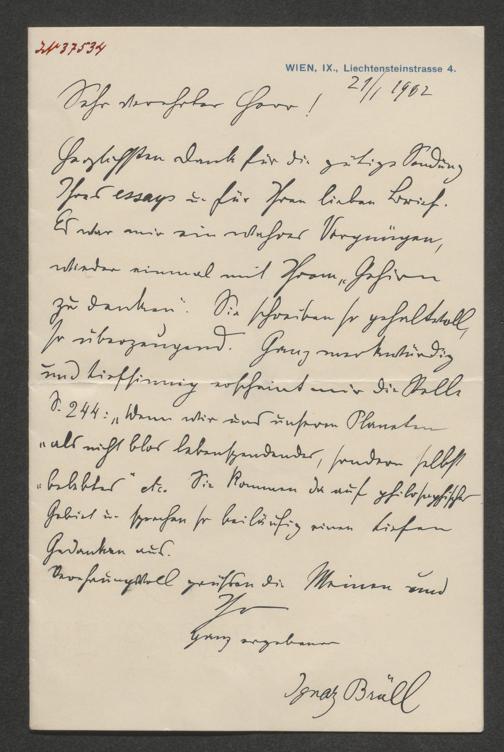 IN 37534
WIEN, IX., Liechtensteinstrasse 4.
21/1 1902
Sehr verehrter Herr!
Herzlichsten Dank für die gütige Sendung
Ihres essays u. für Ihren lieben Brief.
Es war mir ein wahres Vergnügen,
wieder einmal mit Ihrem „Gehirn
zu denken“. Sie schreiben so gehaltvoll,
so überzeugend. Ganz merkwürdig
und tiefsinnig erscheint mir die Stelle
S. 244: „Wenn wir uns unseren Planeten
„als nicht blos lebenspendendes, sondern selbst
„belebtes“ etc. Sie kommen da auf philosophisches
Gebiet u. sprechen so beiläufig einen tiefen
Gedanken aus.
Verehrungsvoll grüssen die Meinen und
Ihr
ganz ergebener
Ignaz Brüll